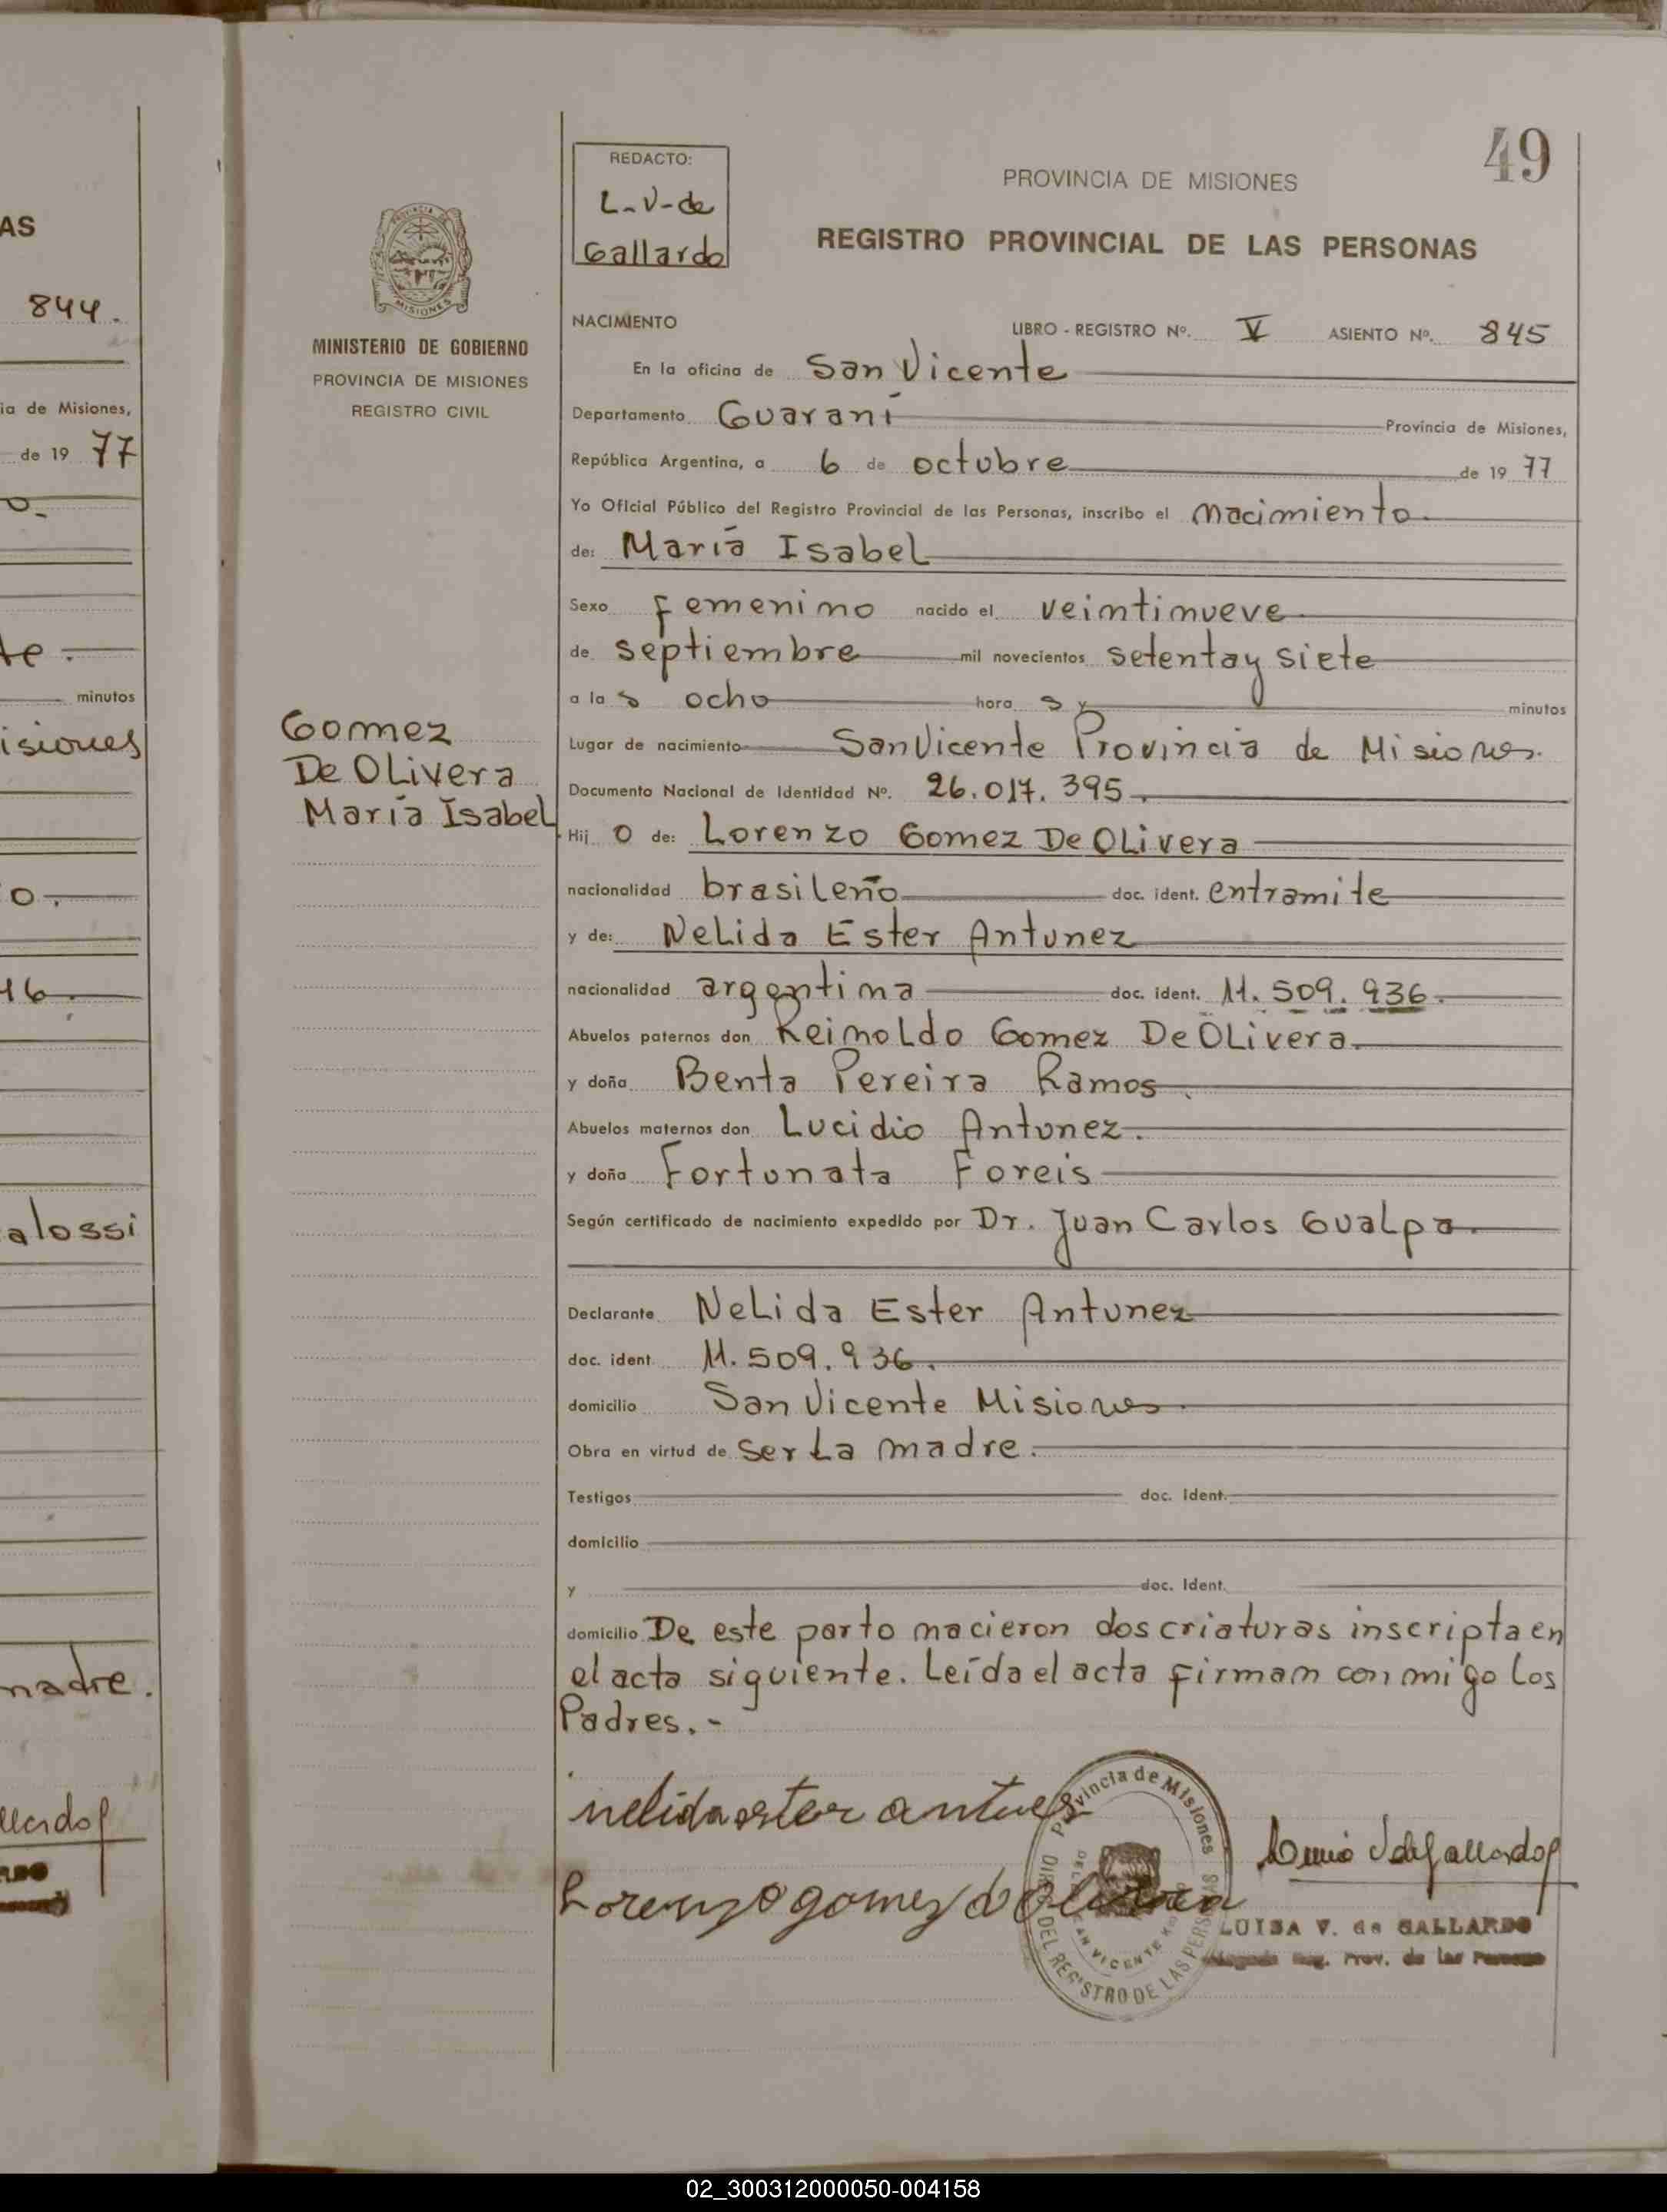 AS
844.
ia de Misiones,
de 19 77
te.
minutos
isiones
o.
46.
alossi
madre.
49
REDACTO:
L-V-de
Gallardo
PROVINCIA DE MISIONES
REGISTRO PROVINCIAL DE LAS PERSONAS
PROVINCIA DE
MISIONES
MINISTERIO DE GOBIERNO
PROVINCIA DE MISIONES
REGISTRO CIVIL
NACIMIENTO LIBRO - REGISTRO Nº. V ASIENTO Nº. 845
En la oficina de San Vicente
Departamento Guaraní Provincia de Misiones,
República Argentina, a 6 de octubre de 19 77
Yo Oficial Público del Registro Provincial de las Personas, inscribo el nacimiento
de: María Isabel
Sexo femenino nacido el veintinueve
de septiembre mil novecientos setenta y siete
a las ocho horas y minutos
Lugar de nacimiento San Vicente Provincia de Misiones.
Gomez
De Olivera
María Isabel
Documento Nacional de Identidad Nº. 26.017.395.
Hijo de: Lorenzo Gomez De Olivera
nacionalidad brasileño doc. ident. entramite
y de: Nelida Ester Antunez
nacionalidad argentina doc. ident. 11.509.936.
Abuelos paternos don Reinoldo Gomez De Olivera.
y doña Benta Pereira Ramos.
Abuelos maternos don Lucidio Antunez.
y doña Fortunata Foreis
Según certificado de nacimiento expedido por Dr. Juan Carlos Gualpa.
Declarante Nelida Ester Antunez
doc. ident. 11.509.936.
domicilio San Vicente Misiones.
Obra en virtud de ser La madre.
Testigos doc. Ident.
domicilio
y doc. Ident.
domicilio De este parto nacieron dos criaturas inscripta en
el acta siguiente. Leída el acta firman conmigo los
Padres.-
nelida ester antues
Lorenzo gomez
Provincia de Misiones
DEL REGISTRO DE LAS PERSONAS
SAN VICENTE
LUISA V. de GALLARDO
Reg. Prov. de las Personas
02_300312000050-004158